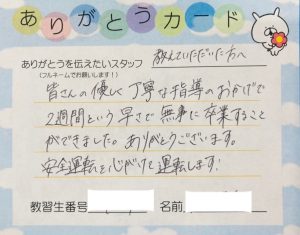 ありがとうカード
ありがとうを伝えたいスタッフ
(フルネームでお願いします！)
教えていただいた方へ
皆さんの優しく丁寧な指導のおかげで
2週間という早さで無事に卒業すること
ができました。ありがとうございます。
安全運転を心がけて運転します!
教習生番号 名前